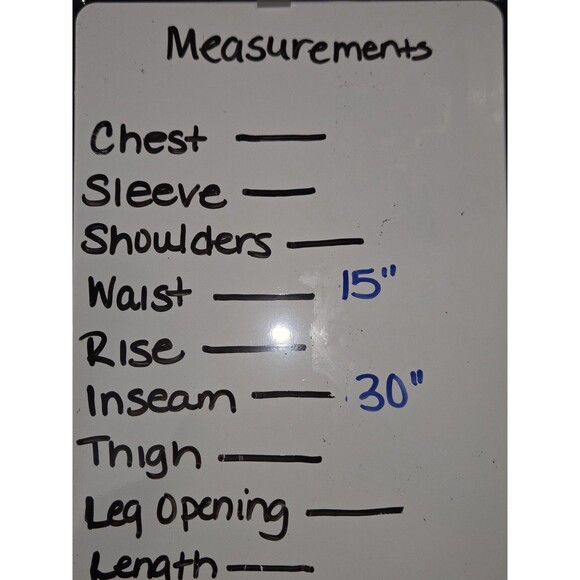 Measurements
Chest —
Sleeve —
Shoulders —
Waist — 15"
Rise —
Inseam — 30"
Thigh —
Leg Opening —
Length —